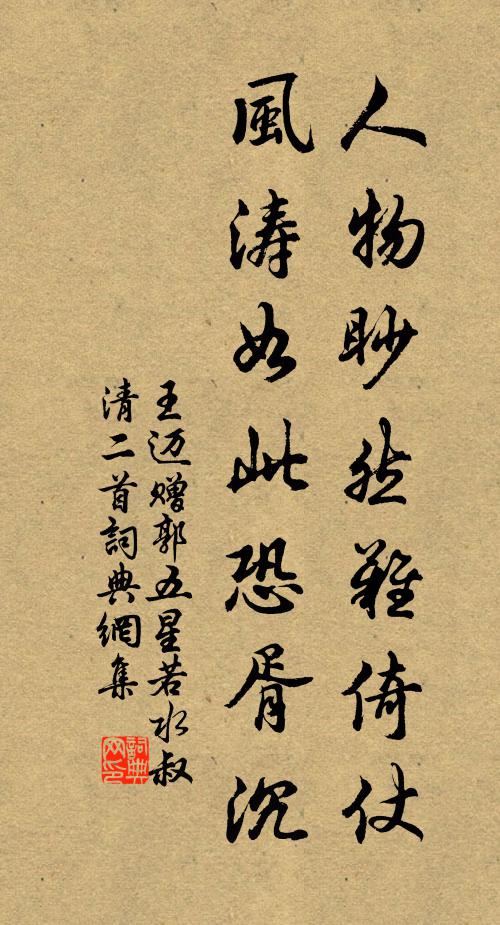 人物眇然難倚仗
風濤如此恐胥沉
王迈贈郭五星若水叔
清二首詞典網集
詞典网印